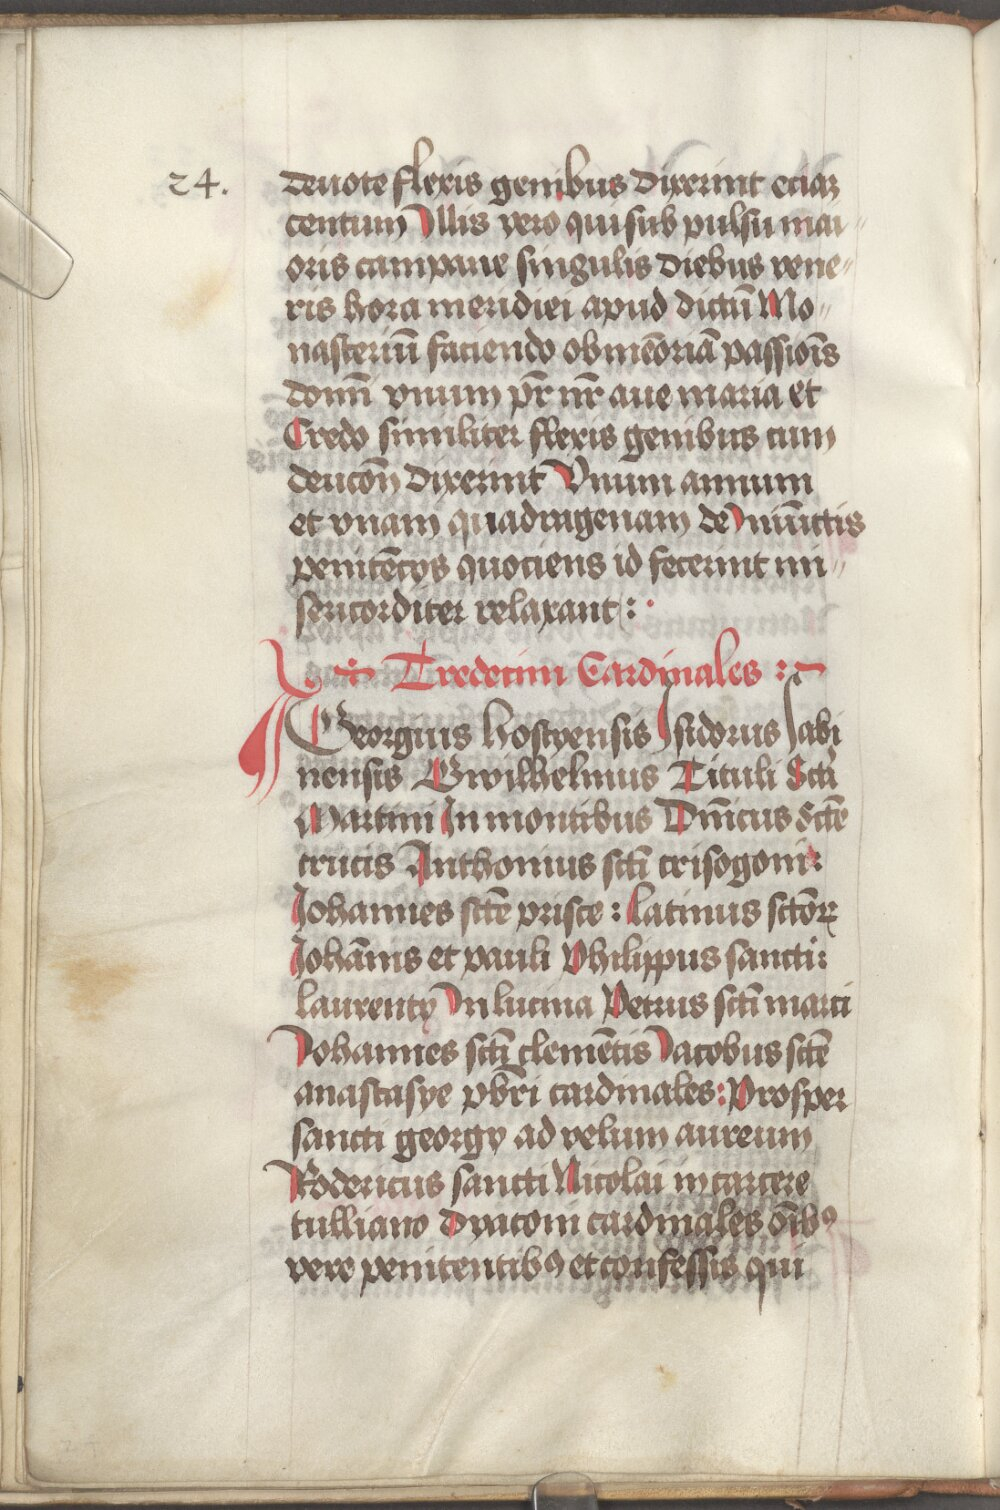 24.
deuote flexis genibus dixerint eciaz
centum Illis vero qui sub pulsu mai
oris campane singulis diebus vene
ris hora meridiei apud dictū Mo
nasteriū faciendo ob mēoriā passiōis
domī vnum pr̄ nr̄ aue maria et
Credo similiter flexis genibus cum
deuCōn dixerint Vnum annum
et vnam quadragenam de Iniūctis
penitēcys quociens id fecerint mi
sericorditer relaxant :
Tredecim Cardinales :
Georgius hostyensis Isidorus Sabi
nensis Gwilhelmus Tituli Scti
Martini In montibus Dn̄icus Sctē
crucis Anthonius sctī crisogoni :
Johannes sctē prisce : latinus sctōꝝ
Johānis et pauli Philippus sancti :
laurenty In lucina Petrus sctī marci
Johannes sctī clemētis Jacobus sctē
anastasye pbrī cardinales : Prosper
sancti georgy ad velum aureum
Rodericus sancti Nicolai in carcere
tulliano dyaconi cardinales ōibꝯ
vere penitentibꝯ et confessis qui